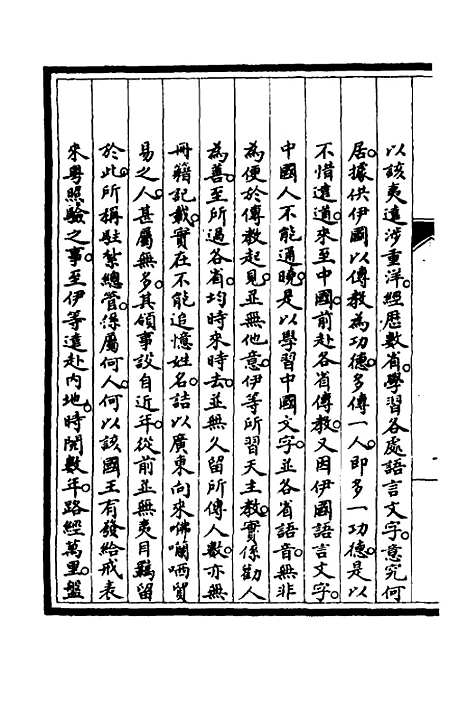 以該夷遠涉重洋。經歷數省。學習各處語言文字。意究何
居。據供伊國以傳教為功德。多傳一人。即多一功德。是以
不惜遠道。來至中國。前赴各省傳教。又因伊國語言文字。
中國人不能通曉。是以學習中國文字。並各省語音。無非
為便於傳教起見。並無他意。伊等所習天主教。實係勸人
為善。至所過各省。均時來時去。並無久留。所傳人數。亦無
冊籍記載。實在不能追憶姓名。詰以廣東向來㗎囒哂貿
易之人。甚屬無多。其領事設自近年。從前並無夷目羈留
於此。所稱駐紮總管。係屬何人。何以該國王有發給戒表
來粵照驗之事。至伊等遠赴內地。時閱數年。路經萬里。盤